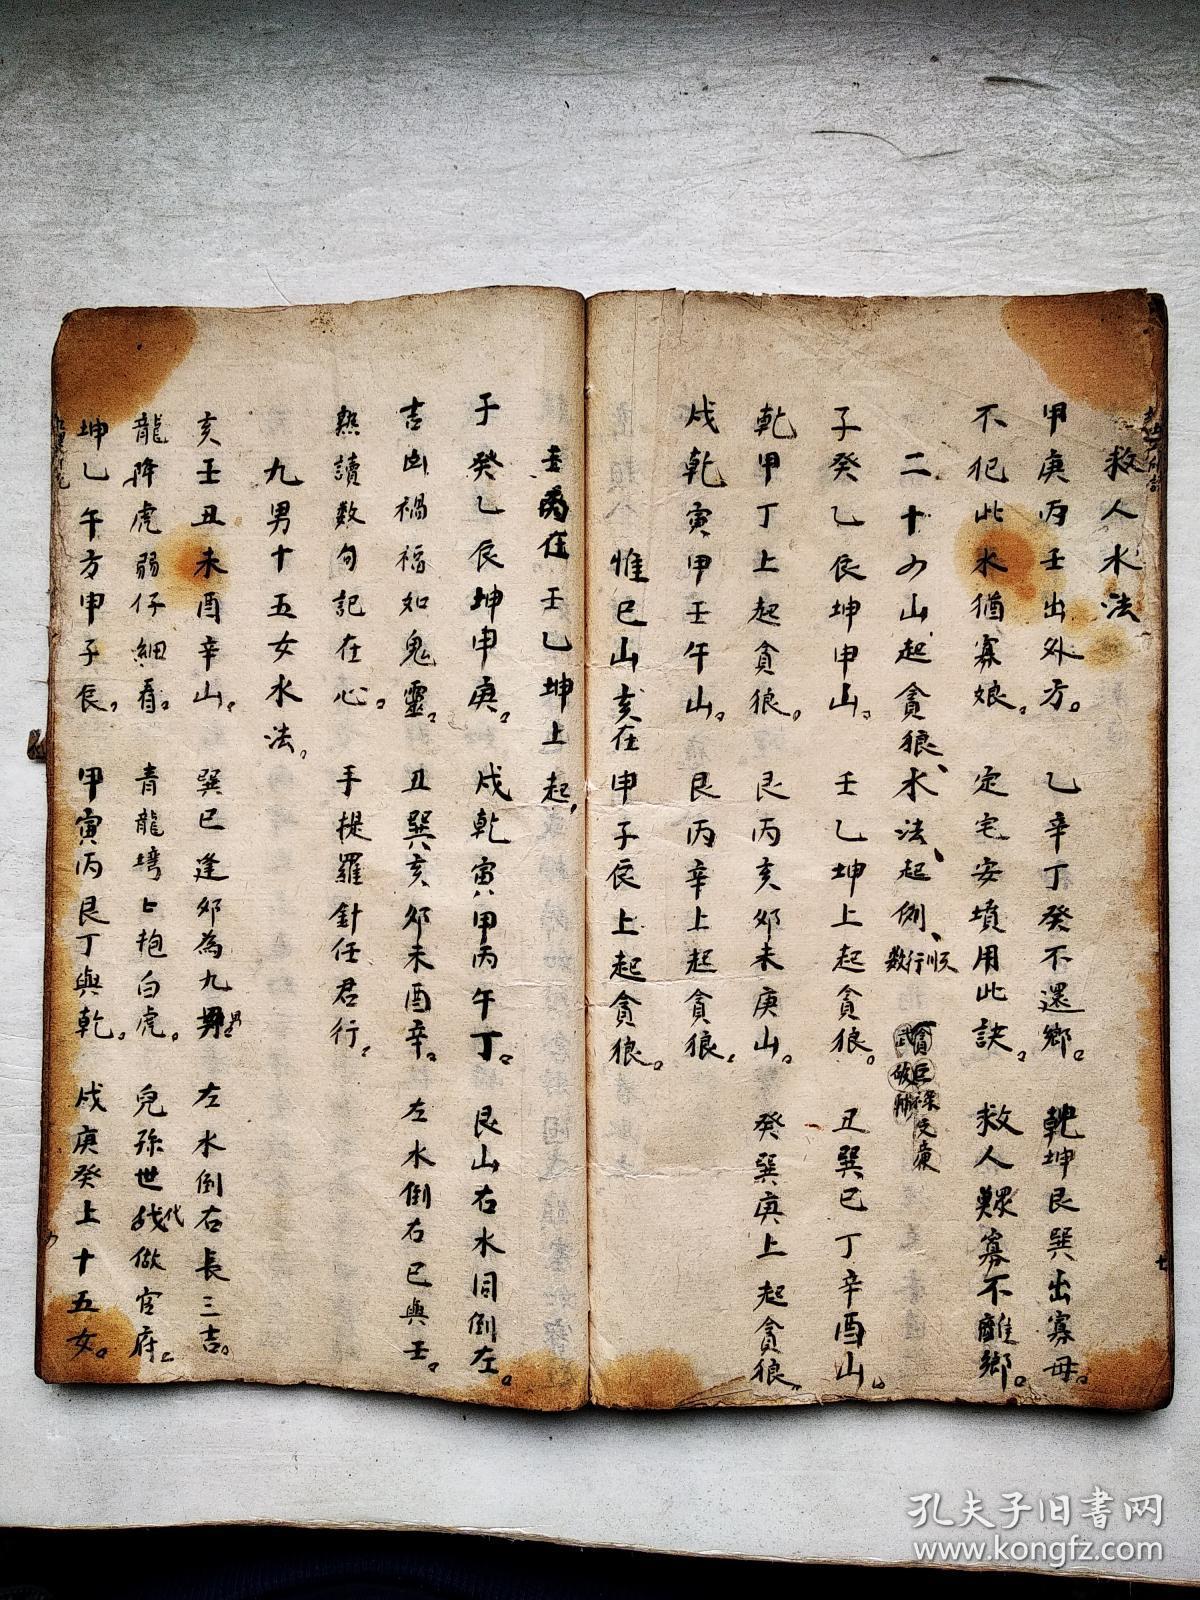 救人水法
甲庚丙壬出外方。乙辛丁癸不還鄉。乾坤艮巽出寡母。
不犯此水猶寡娘。定宅安墳用此訣。救人艱寡不離鄉。
二十四山起貪狼、水法、起例、順行数
貪巨祿文廉
武破輔
子癸乙辰坤申山。壬乙坤上起貪狼。丑巽巳丁辛酉山。
乾甲丁上起貪狼。艮丙亥卯未庚山。癸巽庚上起貪狼。
戌乾寅甲壬午山。艮丙辛上起貪狼。
惟巳山亥在申子辰上起貪狼。
壬乙坤上起,
子癸乙辰坤申庚。戌乾寅甲丙午丁。艮山右水同倒左。
吉凶禍福如鬼靈。丑巽亥卯未酉辛。左水倒右巳與壬。
熟讀数句記在心。手提羅針任君行。
九男十五女水法。
亥壬丑未酉辛山。巽巳逢卯為九男。左水倒右長三吉。
龍降虎弱仔細看。青龍灣上抱白虎。兒孫世代做官府。
坤乙午方申子辰。甲寅丙艮丁與乾。戌庚癸上十五女。
七
孔夫子旧书网
www.kongfz.com